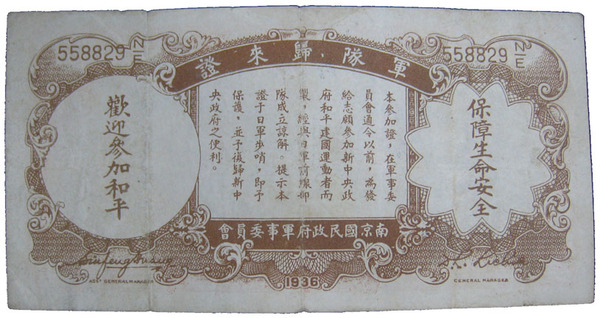 558829 N/E
558829 N/E
軍隊·歸來證
保障生命安全
本參加證，在軍事委
員會通令以前，為發
給志願參加新中央政
府和平建國運動者而
製，經與日軍前線部
隊成立諒解。提示本
證于日軍步哨，即予
保護，並予復歸新中
央政府之便利。
歡迎參加和平
南京國民政府軍事委員會
ASST GENERAL MANAGER
GENERAL MANAGER
1936